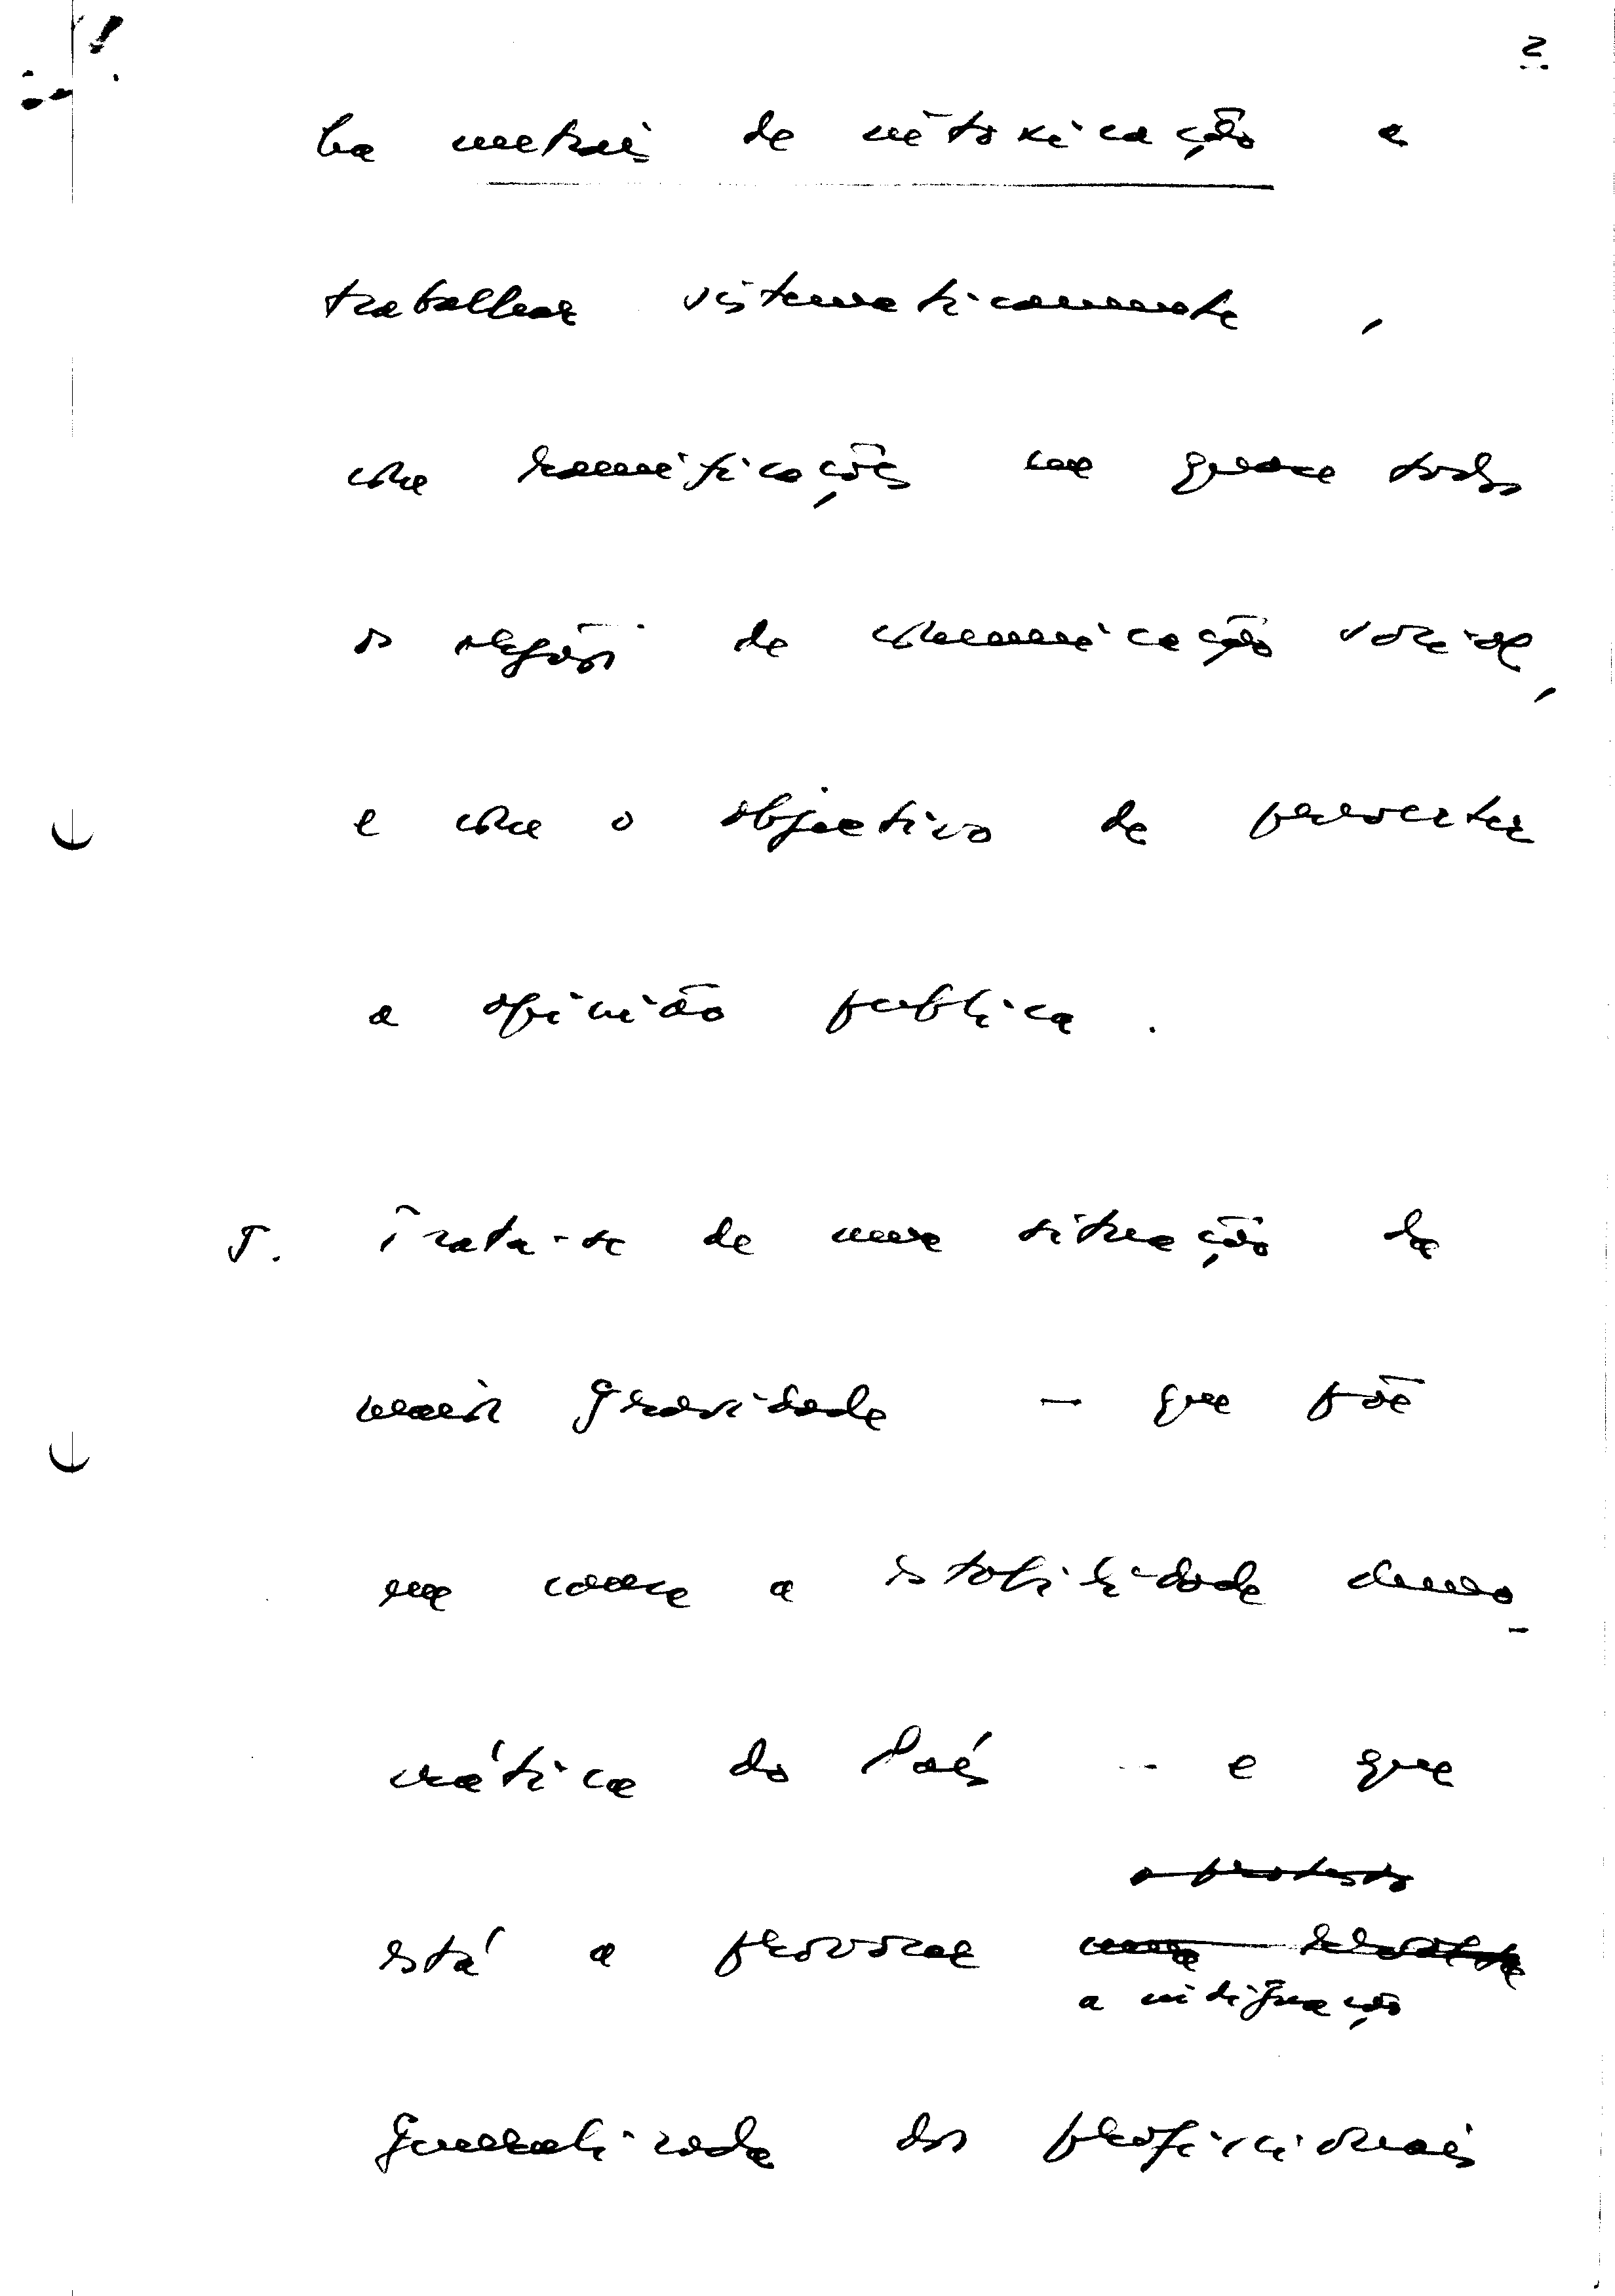 2
ba metrais de intoxicação a
trabalhar sistematicamente,
com ramificações em quase todos
os orgãos de comunicação social,
e com o objectivo de perverter
a opinião publica.
5. Trata-se de uma situação da
maior gravidade - que põe
em causa a estabilidade demo-
crática do País - e que
o protesto
está a provocar uma revolta
a indignação
generalizada dos profissionais